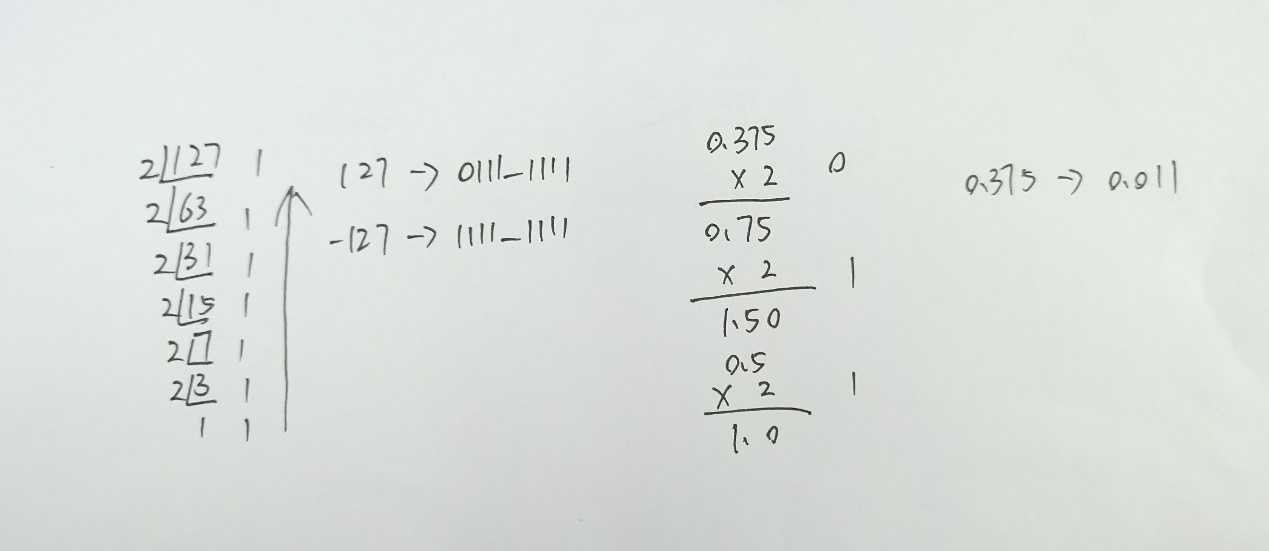 2 127 1
2 63 1
2 31 1
2 15 1
2 7 1
2 3 1
1 1
127 -> 0111_1111
-127 -> 1111_1111
0.375
x 2 0
0.75
x 2 1
1.50
0.5
x 2 1
1.0
0.375 -> 0.011